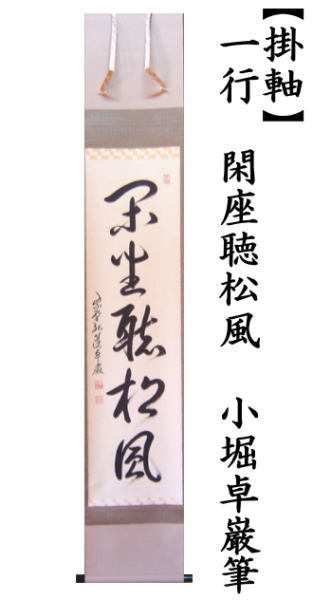 【掛軸】
一行 閑座聴松風 小堀卓巌筆
閑坐聴松風